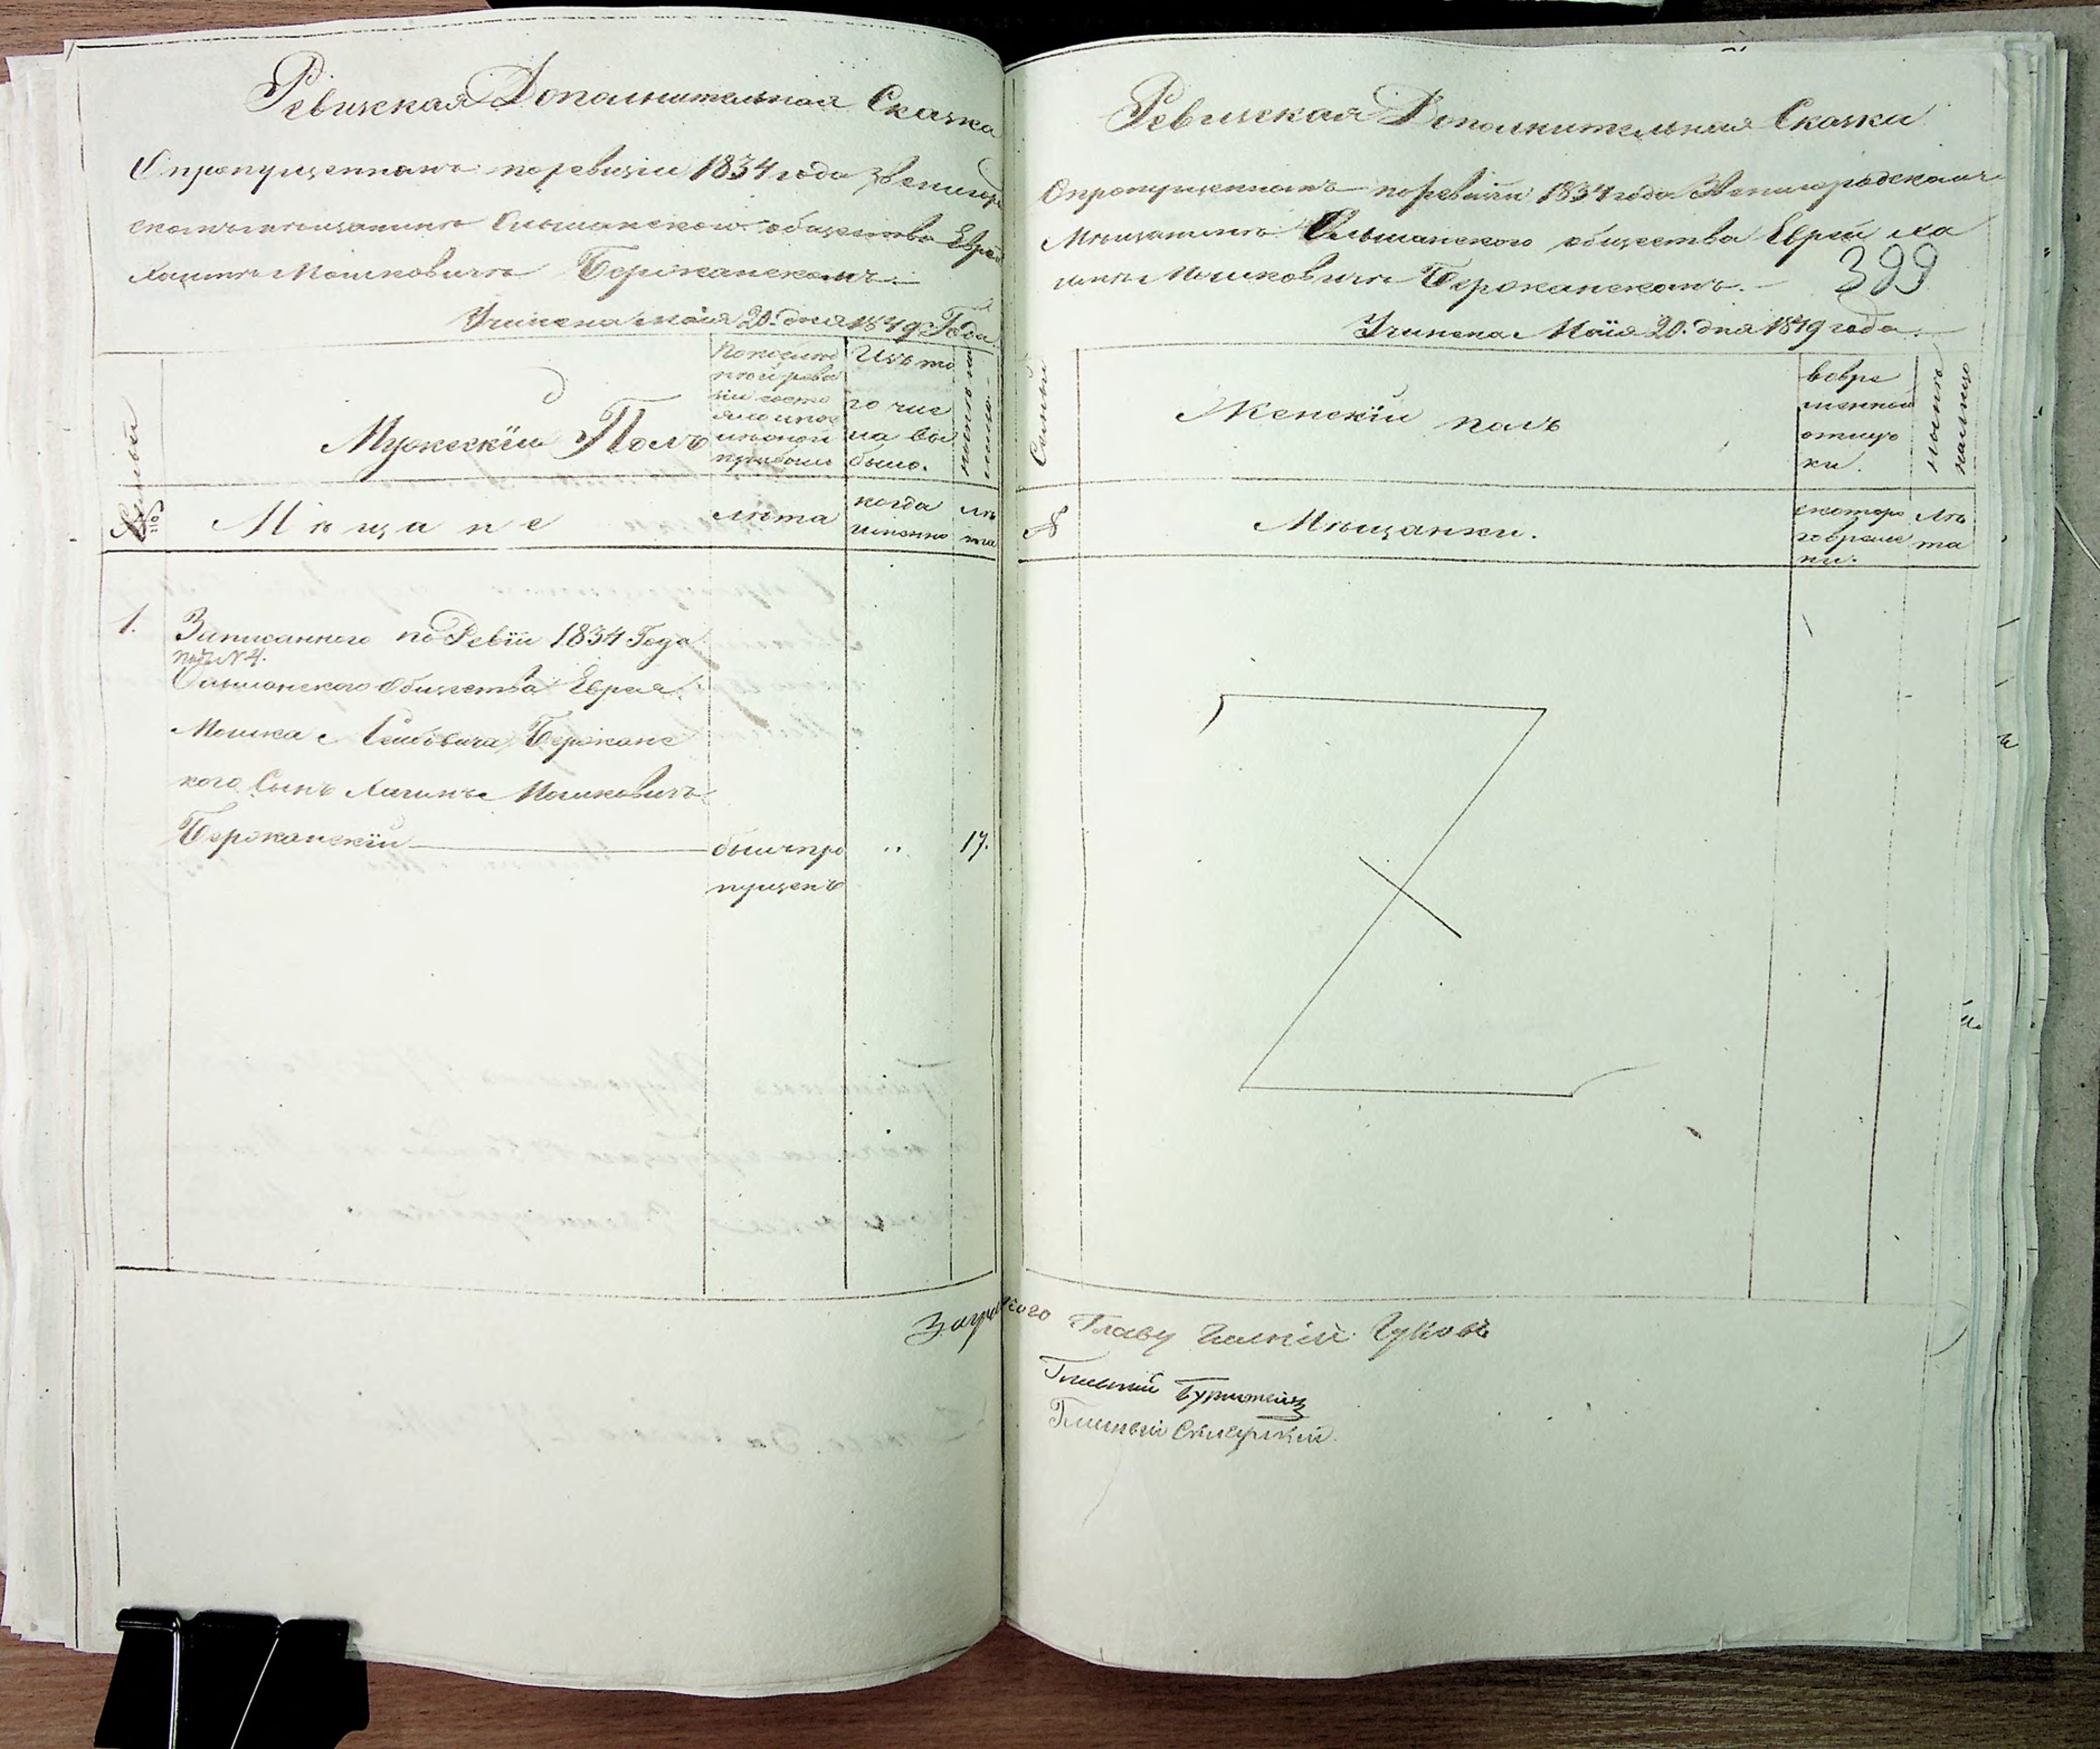 Ревизская Дополнительная Сказка
О пропущенномъ поревизіи 1834 года Звенигород
скомъ мѣщанинѣ Ольшанского общества Еврей
Хаимѣ Мошковичѣ Бержанскомъ.
Учинена маія 20. дня 1849 Года
Семьи
Мужескїй Полъ
По послѣд
ней реви
зіи состо
яло и пос
лѣ оной
прибыло
Изъ то
го чис
ла вы
было.
нынѣ на
лицо.
№
Мѣщане
лѣта
когда
именно
лѣ
та
1.
Записанного по Ревїи 1834 Года
подъ № 4.
Ольшанского Общества Еврея
Мошка Бержанс
кого Сынъ Хаимъ Мошковичъ
Бержанскїй
былъ про
пущенъ
〃
17.
Ревизская Дополнительная Сказка
О пропущенномъ по ревизіи 1834 года Звенигородскомъ
Мѣщанинѣ Ольшанского общества Еврей Ха
имѣ Мошковичѣ Бержанскомъ.
399
Учинена Маїя 20. дня 1849 года.
Семьи
Женскїй полъ
вовре
менной
отлуч
ки.
нынѣ
налицо
№
Мѣщанки.
скоторо
го време
ни.
Лѣ
та
Главу
Гласный
Гласный